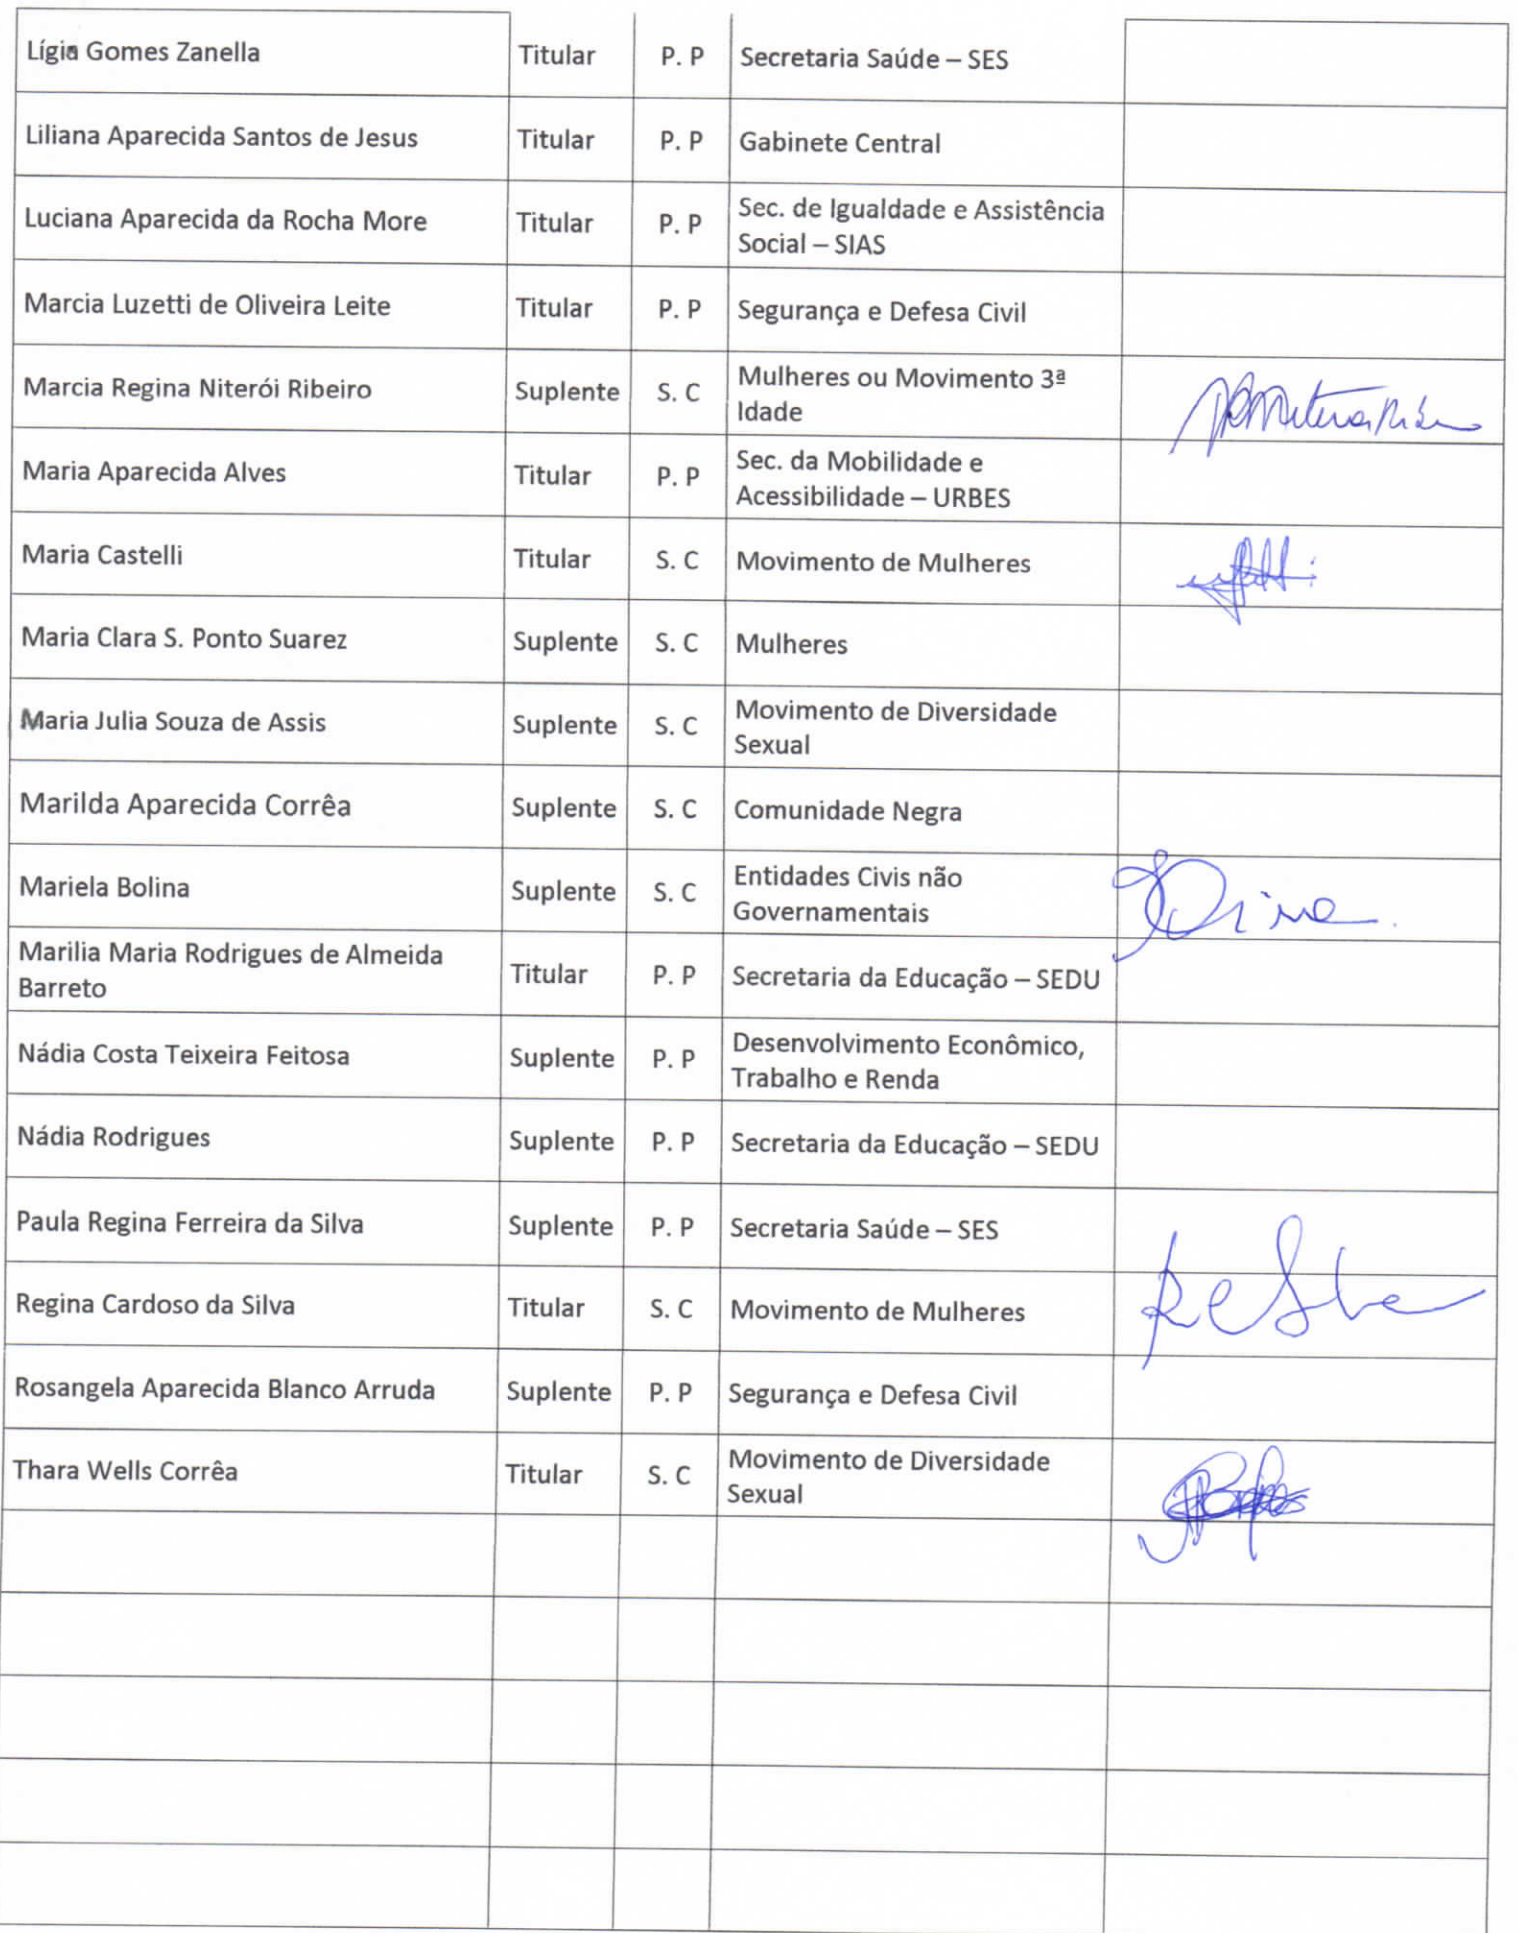 Lígia Gomes Zanella Titular P. P Secretaria Saúde – SES
Liliana Aparecida Santos de Jesus Titular P. P Gabinete Central
Luciana Aparecida da Rocha More Titular P. P Sec. de Igualdade e Assistência
Social – SIAS
Marcia Luzetti de Oliveira Leite Titular P. P Segurança e Defesa Civil
Marcia Regina Niterói Ribeiro Suplente S. C Mulheres ou Movimento 3ª
Idade
Maria Aparecida Alves Titular P. P Sec. da Mobilidade e
Acessibilidade – URBES
Maria Castelli Titular S. C Movimento de Mulheres
Maria Clara S. Ponto Suarez Suplente S. C Mulheres
Maria Julia Souza de Assis Suplente S. C Movimento de Diversidade
Sexual
Marilda Aparecida Corrêa Suplente S. C Comunidade Negra
Mariela Bolina Suplente S. C Entidades Civis não
Governamentais
Marilia Maria Rodrigues de Almeida
Barreto Titular P. P Secretaria da Educação – SEDU
Nádia Costa Teixeira Feitosa Suplente P. P Desenvolvimento Econômico,
Trabalho e Renda
Nádia Rodrigues Suplente P. P Secretaria da Educação – SEDU
Paula Regina Ferreira da Silva Suplente P. P Secretaria Saúde – SES
Regina Cardoso da Silva Titular S. C Movimento de Mulheres
Rosangela Aparecida Blanco Arruda Suplente P. P Segurança e Defesa Civil
Thara Wells Corrêa Titular S. C Movimento de Diversidade
Sexual